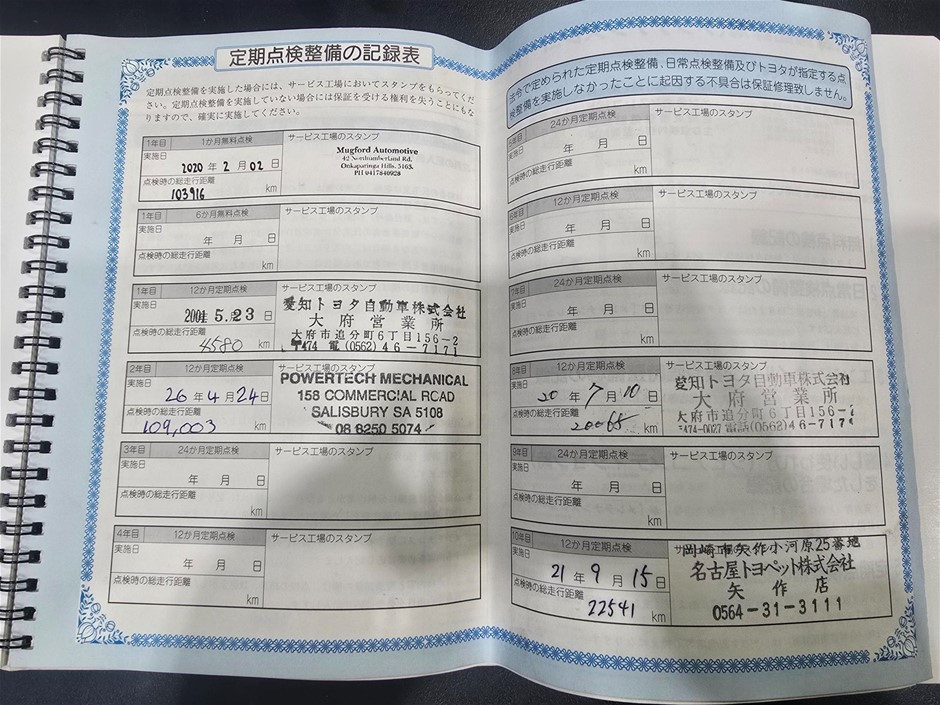 定期点検整備の記録表
定期点検整備を実施した場合には、サービス工場においてスタンプをもらってくだ
さい。定期点検整備を実施していない場合には保証を受ける権利を失うことにもな
りますので、確実に実施してください。
1年目 1か月無料点検 サービス工場のスタンプ
実施日
2020年2月02日
点検時の総走行距離
103916 km
Mugford Automotive
42 Northumberland Rd.
Onkaparinga Hills. 5163.
PH 0417840928
1年目 6か月無料点検 サービス工場のスタンプ
実施日
年 月 日
点検時の総走行距離
km
1年目 12か月定期点検 サービス工場のスタンプ
実施日
2001 5.23日
点検時の総走行距離
4580 km
愛知トヨタ自動車株式会社
大府営業所
大府市追分町6丁目156-2
〒474 電(0562)46-7171
2年目 12か月定期点検 サービス工場のスタンプ
実施日
26年4月24日
点検時の総走行距離
109,003 km
POWERTECH MECHANICAL
158 COMMERCIAL ROAD
SALISBURY SA 5108
08 8250 5074
3年目 24か月定期点検 サービス工場のスタンプ
実施日
年 月 日
点検時の総走行距離
km
4年目 12か月定期点検 サービス工場のスタンプ
実施日
年 月 日
点検時の総走行距離
km
法令で定められた定期点検整備、日常点検整備及びトヨタが指定する点
検整備を実施しなかったことに起因する不具合は保証修理致しません。
24か月定期点検 サービス工場のスタンプ
実施日
年 月 日
点検時の総走行距離
km
12か月定期点検 サービス工場のスタンプ
実施日
年 月 日
点検時の総走行距離
km
7年目 24か月定期点検 サービス工場のスタンプ
実施日
年 月 日
点検時の総走行距離
km
8年目 12か月定期点検 サービス工場のスタンプ
実施日
20年7月10日
点検時の総走行距離
20065 km
愛知トヨタ自動車株式会社
大府営業所
大府市追分町6丁目156-
474-0027 電話(0562)46-717
9年目 24か月定期点検 サービス工場のスタンプ
実施日
年 月 日
点検時の総走行距離
km
10年目 12か月定期点検
実施日
21年9月15日
点検時の総走行距離
22541 km
岡崎市矢作小河原25番地
名古屋トヨペット株式会社
矢作店
0564-31-3111